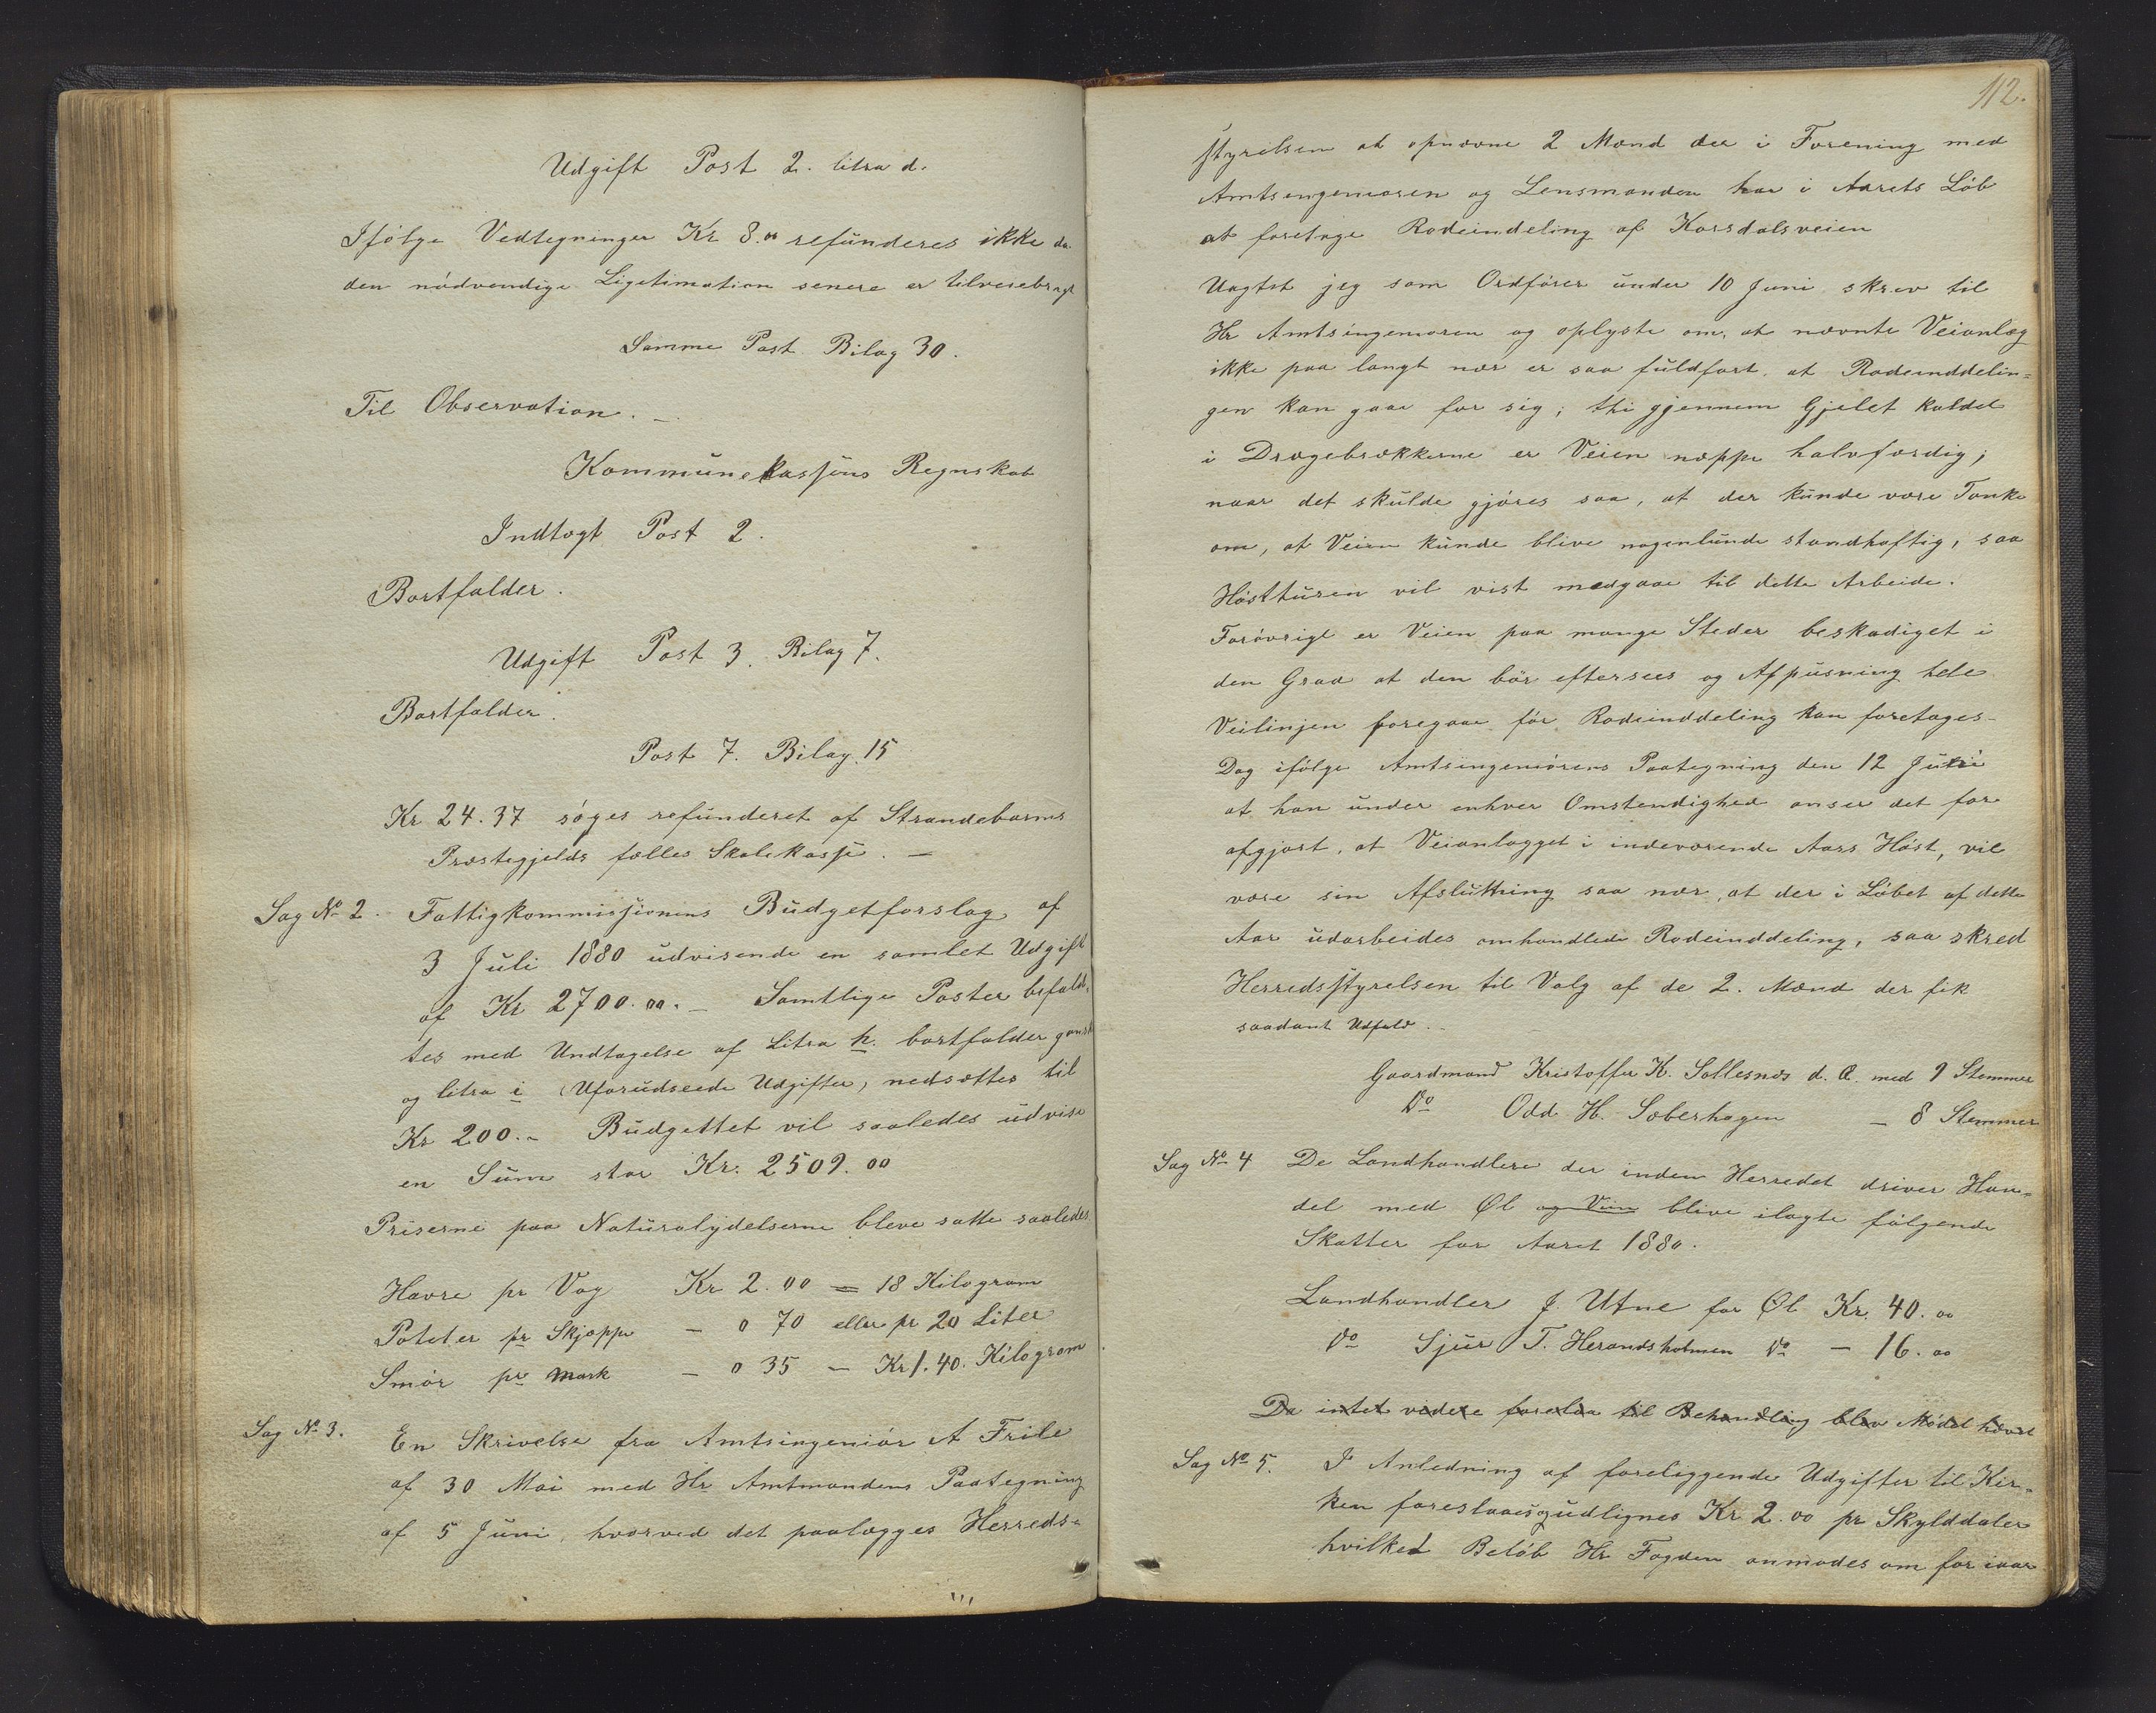 Udgift Post 2. litra d.
Ifölge Vedtegninger Kr 8.00 refunderes ikke da
den nödvendige Ligetimation senere er tilveiebragt
Samme Post Bilag 30.
Til Observation. —
Kommunekassens Regnskab
Indtægt Post 2.
Bortfalder.
Udgift Post 3. Bilag 7.
Bortfalder.
Post 7. Bilag 15
Kr 24.37 söges refunderet af Strandebarms
Præstegjelds fælles Skolekasse. —
Sag No 2. Fattigkommissionens Budgetforslag af
3 Juli 1880 udvisende en samlet Udgift
af Kr 2700.00. — Samtlige Poster befald-
tes med Undtagelse af Litra h. bortfalder gansk
og litra i (Uforudseede Udgifter) nedsættes til
Kr 200.- Budgettet vil saaledes udvise
en Sum stor Kr. 2509.00
Priserne paa Naturalydelserne bleve satte saaledes
Havre pr Vog Kr 2.00 = 18 Kilogram
Poteter pr Skjæppe — 0 70 eller pr 20 Liter
Smör pr mark — 0 35 — Kr 1.40. Kilogram
Sag No 3. En Skrivelse fra Amtsingeniör A Friele
af 30 Mai med Hr Amtmandens Paategning
af 5 Juni, hvorved det paalægges Herreds-
112.
styrelsen at opnævne 2 Mænd der i Forening med
Amtsengeniøren og Lensmanden har i Aarets Löb
at foretage Rodeindeling af Korsdalsveien
Uagtet jeg som Ordförer under 10 Juni skrev til
Hr Amtsingeniøren og oplyste om, at nævnte Veianlæg
ikke paa langt nær er saa fuldført, at Rodeinddelin=
gen kan gaae for sig; thi gjennem Gjelet kaldet
i Dragebrækkerne er Veien næppe halvfærdig;
naar det skulde gjöres saa, at der kunde være Tanke
om, at Veien kunde blive nogenlunde standhaftig, saa
Hösttüren vil vist medgaae til dette Arbeide.
Forövrigt er Veien paa mange Steder beskadiget i
den Grad at den bör eftersees og Afpüsning hele
Veilinjen foregaae för Rodeinddeling kan foretages-
Dog ifölge Amtsingeniörens Paategning den 12 Juni
at han under enhver Omstendighed anser det for
afgjort, at Veianlægget i indeværende Aars Höst, vil
være sin Afslutning saa nær, at der i Löbet af dette
Aar udarbeides omhandlede Rodeinddeling, saa skred
Herredsstyrelsen til Valg af de 2. Mænd der fik
saadant Udfald. -
Gaardmand Kristoffer K. Sollesnæs d. Æ. med 9 Stemmer
Do Odd H. Soberhagen — 8 Stemmer
Sag No 4 De Landhandlere der inden Herredet driver Han-
del med Øl og Vin blive ilagte fölgende
Skatter for Aaret 1880.
Landhandler J. Utne for Øl Kr. 40.00
Do Sjur T. Herandsholmen Do — 16.00
Da intet videre forelaa til Behandling blev Mödet hævet
Sag No 5. I Anledning af foreliggende Udgifter til Kir-
ken foreslaaes udlignes Kr 2.00 pr Skylddaler
hvilket Belöb Hr Fogden anmodes om for iaar